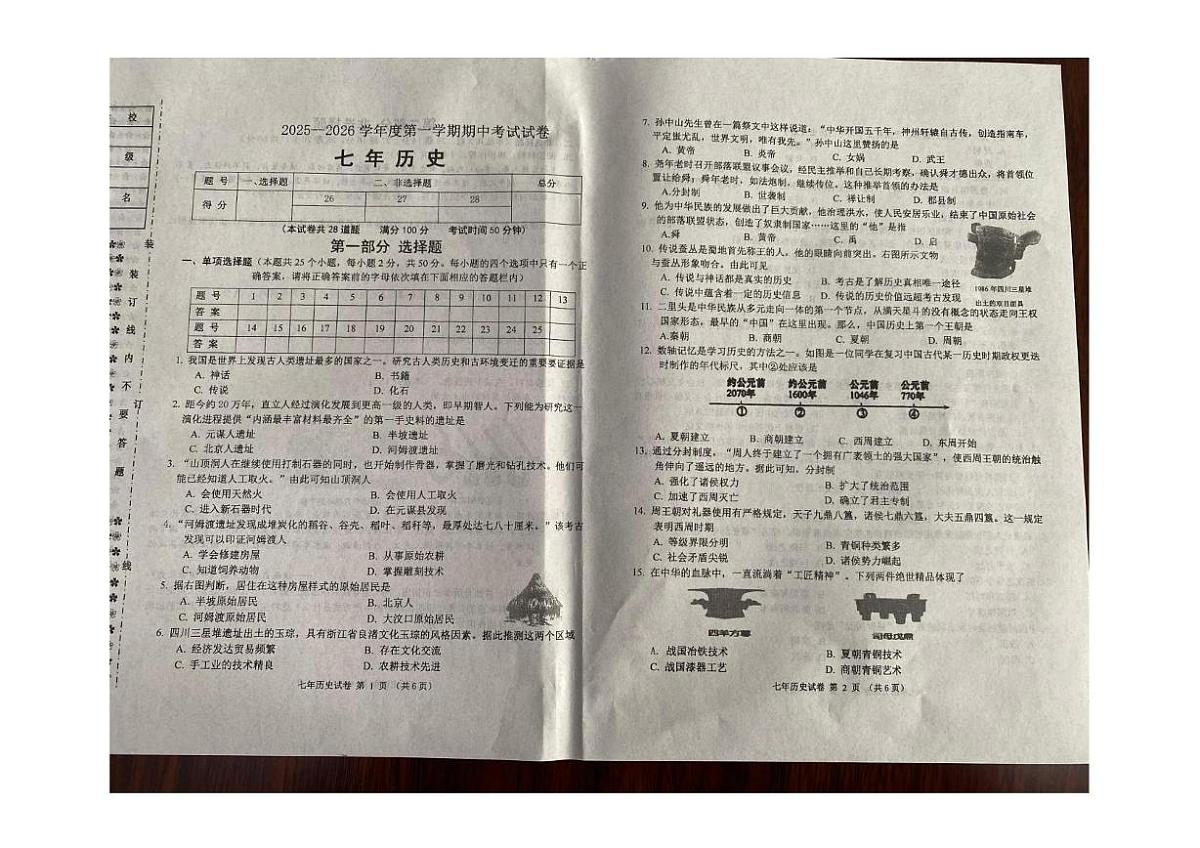 校
级
名
装
订
线
内
不
要
答
题
装
订
线
2025—2026学年度第一学期期中考试试卷
七年历史
题 号 一、选择题 二、非选择题 总分
得 分 26 27 28
(本试卷共28道题 满分100分 考试时间50分钟)
第一部分 选择题
一、单项选择题（本题共25个小题，每小题2分，共50分。每小题的四个选项中只有一个正
确答案，请将正确答案前的字母依次填在下面相应的答题栏内）
题 号 1 2 3 4 5 6 7 8 9 10 11 12 13
答 案
题 号 14 15 16 17 18 19 20 21 22 23 24 25
答 案
1. 我国是世界上发现古人类遗址最多的国家之一。研究古人类历史和古环境变迁的重要要证据是
A. 神话 B. 书籍
C. 传说 D. 化石
2. 距今约20万年，直立人经过演化发展到更高一级的人类，即早期智人。下列能为研究这一
演化进程提供“内涵最丰富材料最齐全”的第一手史料的遗址是
A. 元谋人遗址 B. 半坡遗址
C. 北京人遗址 D. 河姆渡遗址
3. “山顶洞人在继续使用打制石器的同时，也开始制作骨器，掌握了磨光和钻孔技术。他们可
能已经知道人工取火。”由此可知山顶洞人
A. 会使用天然火 B. 会使用人工取火
C. 进入新石器时代 D. 在元谋县发现
4. “河姆渡遗址发现成堆炭化的稻谷、谷壳、稻叶、稻秆等，最厚处达七八十厘米。”该考古
发现可以印证河姆渡人
A. 学会修建房屋 B. 从事原始农耕
C. 知道饲养动物 D. 掌握雕刻技术
5. 据右图判断，居住在这种房屋样式的原始居民是
A. 半坡原始居民 B. 北京人
C. 河姆渡原始居民 D. 大汶口原始居民
6. 四川三星堆遗址出土的玉琮，具有浙江省良渚文化玉琮的风格因素。据此推测这两个区域
A. 经济发达贸易频繁 B. 存在文化交流
C. 手工业的技术精良 D. 农耕技术先进
七年历史试卷 第 1 页 （共6页）
7. 孙中山先生曾在一篇祭文中这样说道：“中华开国五千年，神州轩辕自古传，创造指南车，
平定蚩尤乱，世界文明，唯有我先。”孙中山这里赞扬的是
A. 黄帝 B. 炎帝 C. 女娲 D. 武王
8. 尧年老时召开部落联盟议事会议，经民主推举和自己长期考察，确认舜才德出众，将首领位
置让给舜；舜年老时，如法炮制，继续传位。这种推举首领的办法是
A.分封制 B. 世袭制 C. 禅让制 D. 郡县制
9. 他为中华民族的发展做出了巨大贡献，他治理洪水，使人民安居乐业，结束了中国原始社会
的部落联盟状态，创造了奴隶制国家……这里的“他”是指
A.舜 B. 黄帝 C. 禹 D. 启
10. 传说蚕丛是蜀地首先称王的人，他的眼睛向前突出。右图所示文物
与蚕丛形象吻合。由此可见
A. 传说与神话都是真实的历史 B. 考古是了解历史真相唯一途径
C. 传说中蕴含着一定的历史信息 D. 传说的历史价值远超考古发现
1986年四川三星堆
出土的双目面具
11. 二里头是中华民族从多元走向一体的第一个节点，从满天星斗的没有概念的状态走向王权
国家形态，最早的“中国”在这里出现。那么，中国历史上第一个王朝是
A.秦朝 B. 商朝 C. 夏朝 D. 周朝
12. 数轴记忆是学习历史的方法之一。如图是一位同学在复习中国古代某一历史时期政权更迭
时制作的年代标尺，其中②处应该是
约公元前 约公元前 公元前 公元前
2070年 1600年 1046年 770年
① ② ③ ④
A. 夏朝建立 B. 商朝建立 C. 西周建立 D. 东周开始
13. 通过分封制度，“周人终于建立了一个拥有广袤领土的强大国家”，使西周王朝的统治触
角伸向了遥远的地方。据此可知，分封制
A. 强化了诸侯权力 B. 扩大了统治范围
C. 加速了西周灭亡 D. 确立了君主专制
14. 周王朝对礼器使用有严格规定，天子九鼎八簋，诸侯七鼎六簋，大夫五鼎四簋。这一规定
表明西周时期
A. 等级界限分明 B. 青铜种类繁多
C. 社会矛盾尖锐 D. 诸侯势力崛起
15. 在中华的血脉中，一直流淌着“工匠精神”。下列两件绝世精品体现了
四羊方尊 司母戊鼎
A. 战国冶铁技术 B. 夏朝青铜技术
C. 战国漆器工艺 D. 商朝青铜艺术
七年历史试卷 第 2 页 （共6页）